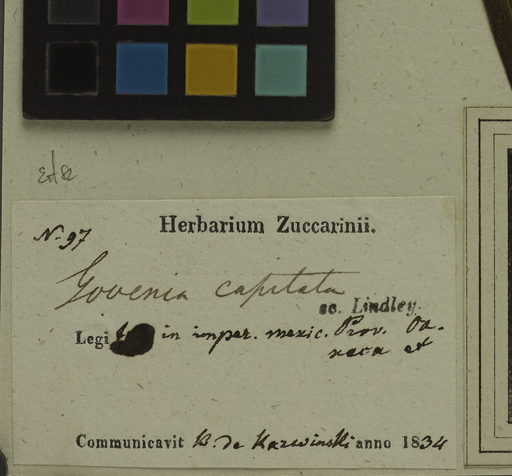 N. 97
Herbarium Zuccarinii.
Govenia capitata
sc. Lindley.
Legi in imper. mexic. Prov. Oa-
xaca et
Communicavit B. de Karwinski anno 1834